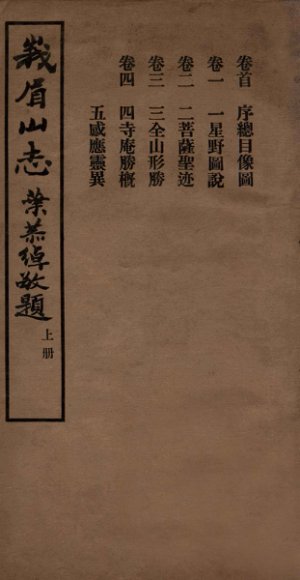 卷首　序總目像圖
卷一　一星野圖說
卷二　二菩薩聖迹
卷三　三全山形勝
卷四　四寺庵勝概
五感應靈異
峩眉山志
葉恭綽敬題
上册